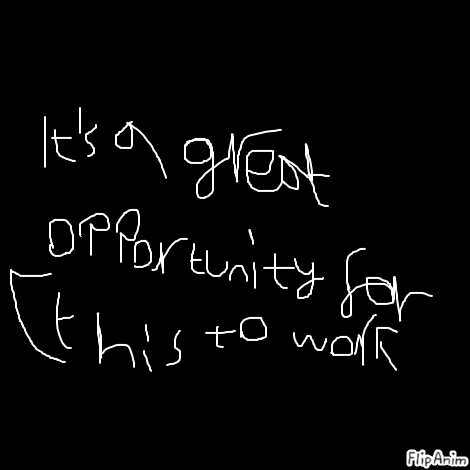 It's a great
opportunity for
this to work
FlipAnim